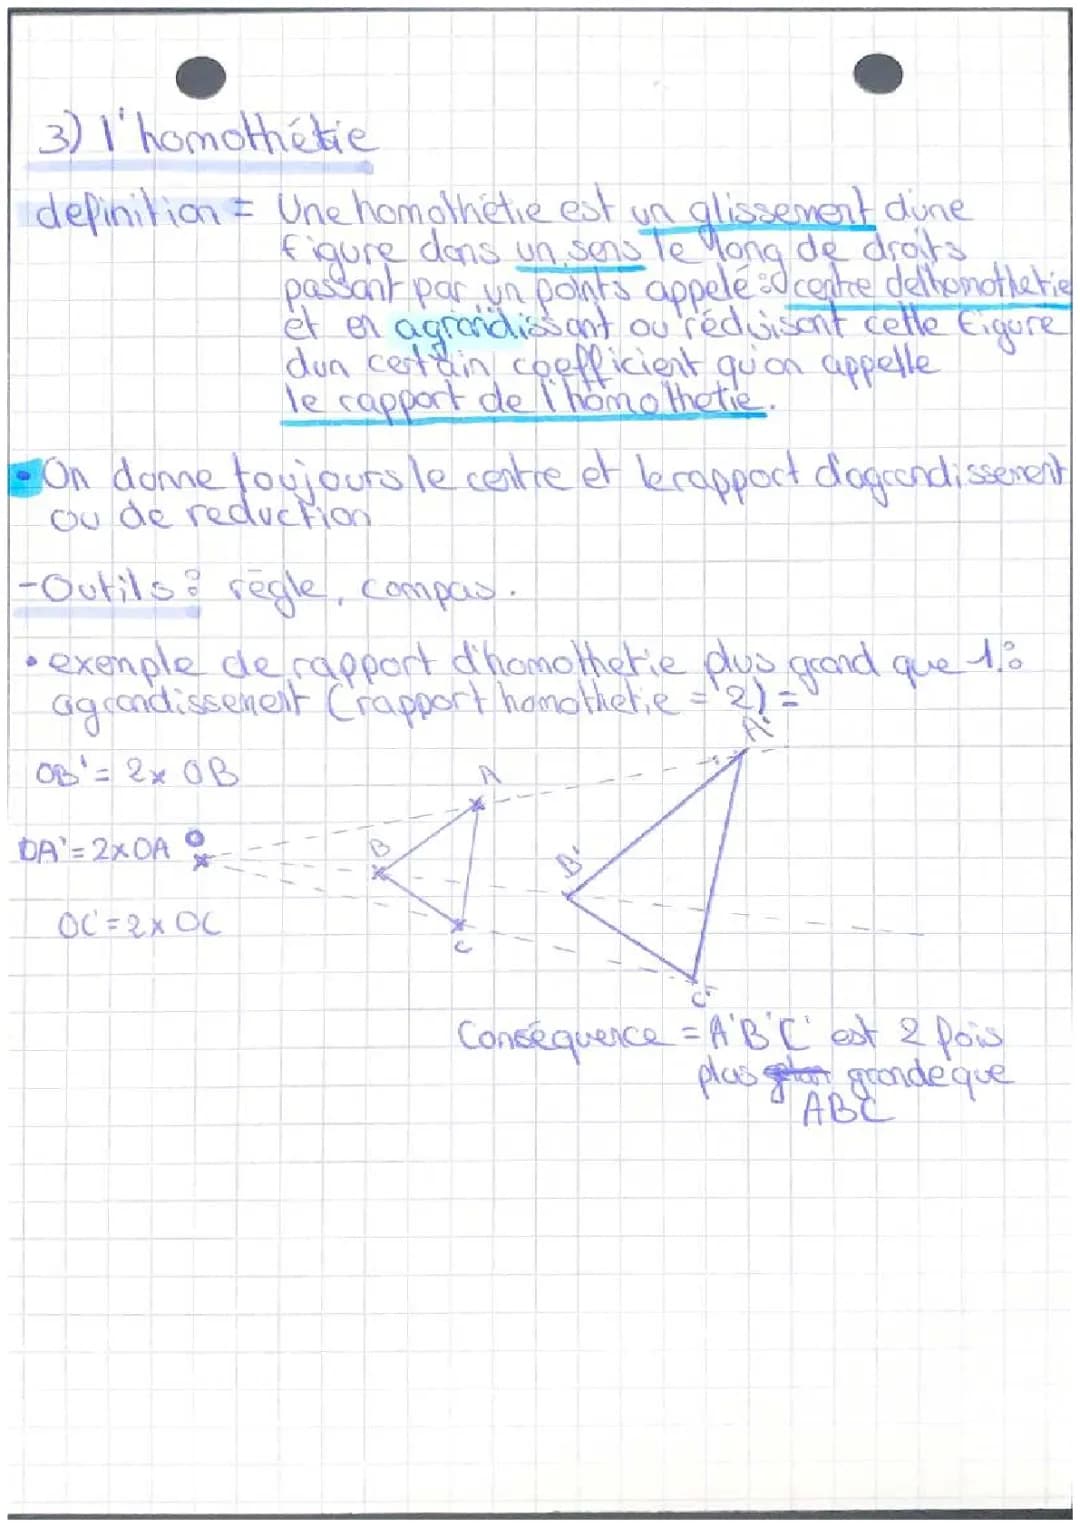 3) l'homothétie
definition = Une homothétie est un glissement d'une
figure dans un sens le long de droits
passant par un points appelé : centre delhomothetie
et en agrandissant ou réduisant cette figure
dun certain coefficient qu'on appelle
le rapport de l'homothetie.
• On donne toujours le centre et le rapport d'agrandissement
ou de reduction
-Outils : règle, compas.
• exemple de rapport d'homothetie plus grand que 1 :
aggrandissement (rapport homothetie = 2) =
A'
OB' = 2x OB
A
OA' = 2x OA
O
B
B'
OC' = 2x OC
C
C'
Conséquence = A'B'C' est 2 fois
plus grande que
ABC